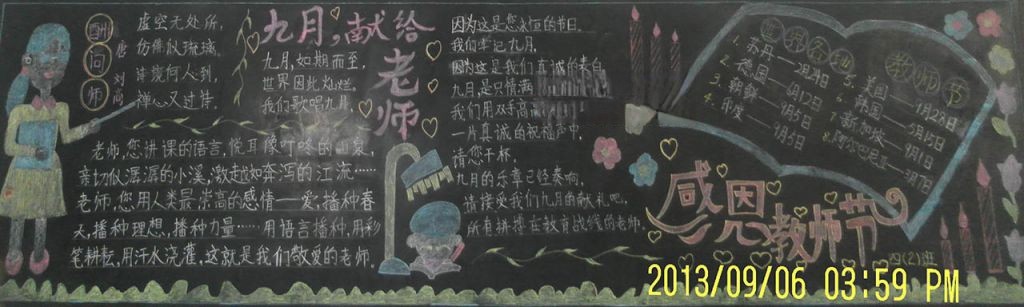 酬问师
唐 刘商
虚空无处所，
仿佛似琉璃。
诗境何人到，
禅心又过诗。
九月，献给老师
九月，如期而至，
世界因此灿烂。
我们歌唱九月，
因为这是您永恒的节日。
我们牢记九月，
因为这是我们真诚的表白
九月，是只情满
我们用双手高
一片真诚的祝福声中，
请您干杯，
九月的乐章已经奏响，
请接受我们九月的献礼吧，
所有耕耘在教育战线的老师。
老师，您讲课的语言，悦耳像叮咚的山泉，
亲切似潺潺的小溪，激越如奔泻的江流……
老师，您用人类最崇高的感情——爱，播种春
天，播种理想，播种力量……用语言播种，用彩
笔耕耘，用汗水浇灌，这就是我们敬爱的老师。
世界各地教师节
1. 苏丹——2月24日
2. 德国——6月12日
3. 朝鲜——9月5日
4. 印度——9月5日
5. 美国——9月28日
6. 韩国——5月15日
7. 新加坡——9月1日
8. 阿尔巴尼亚——3月7日
感恩教师节
六(2)班
2013/09/06 03:59 PM